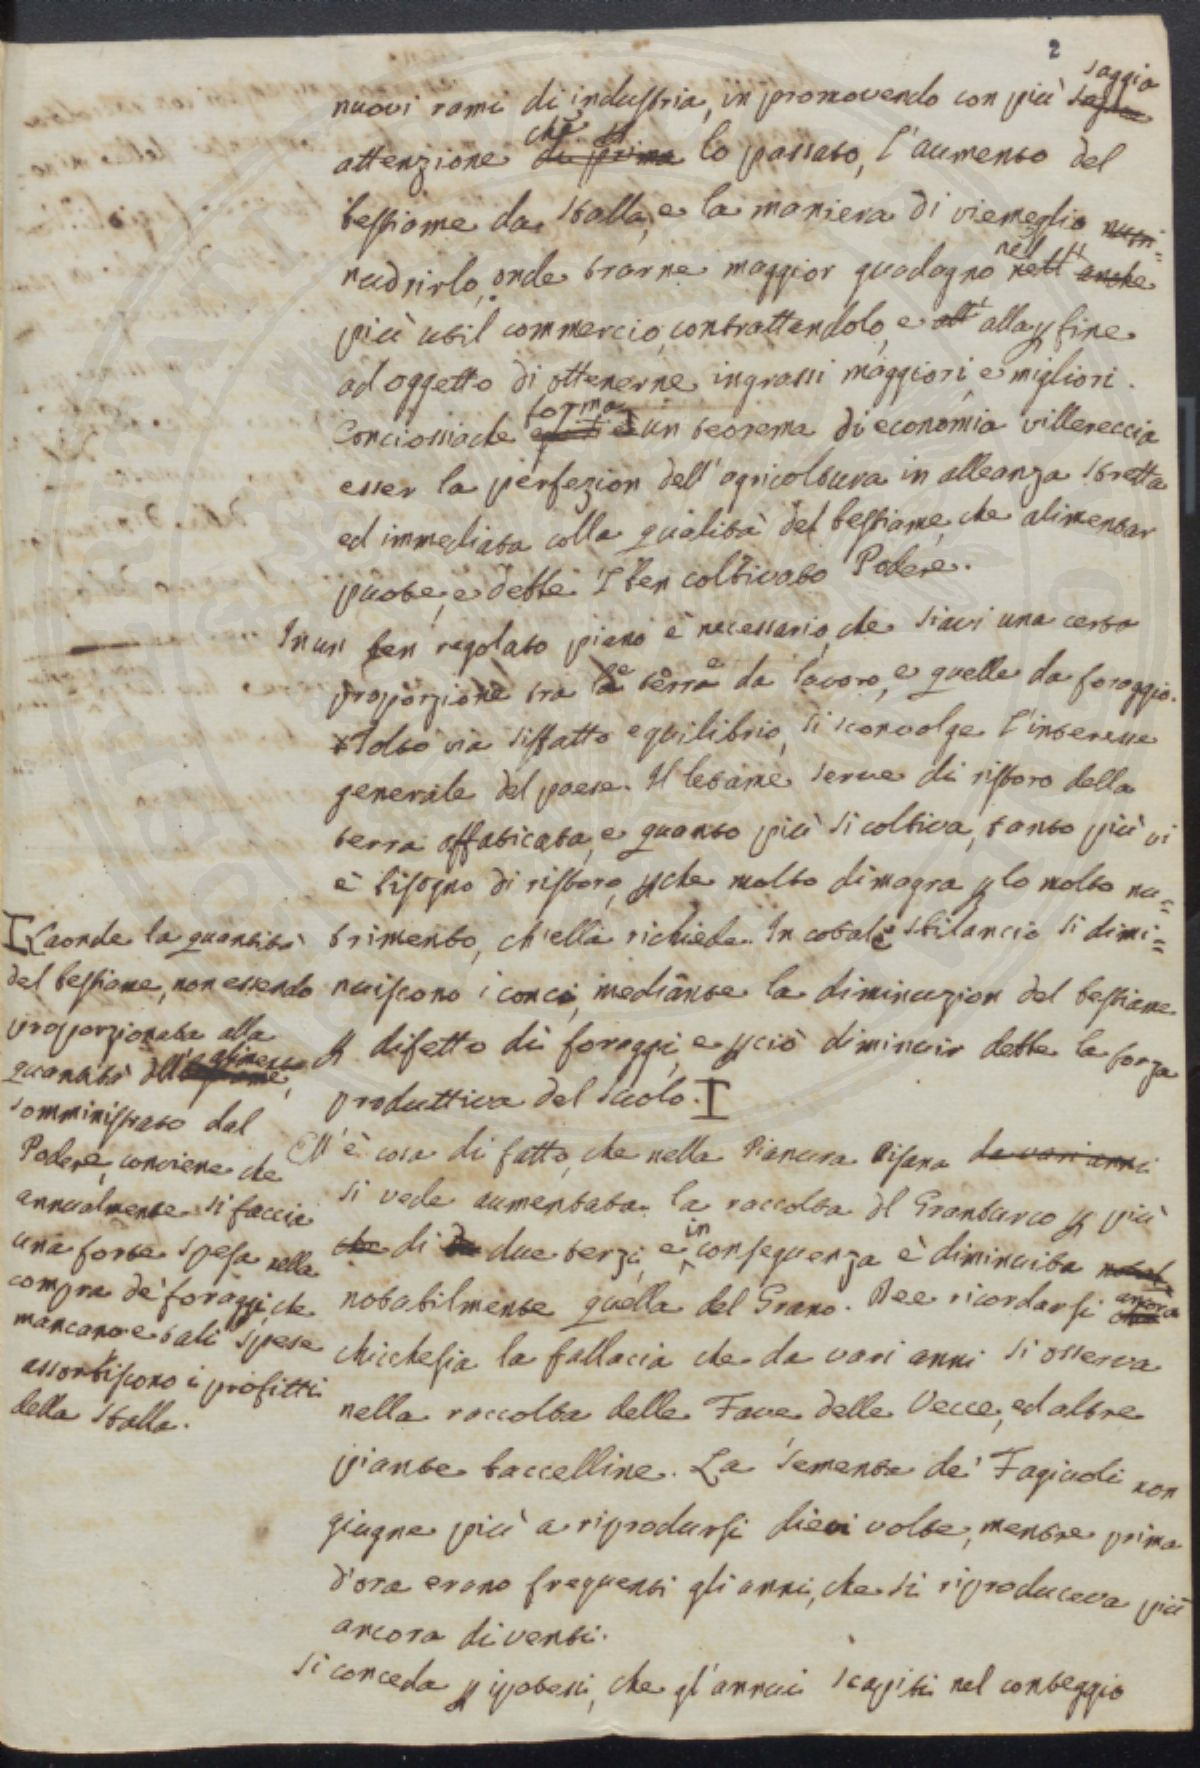 2
nuovi rami di industria, in promovendo con più saggia
attenzione che pel lo passato, l'aumento del
bestiame da stalla, e la maniera di viemeglio nutri=
nudrirlo, onde trarne maggior guadagno nell' nell' anche
più util commercio, contrattandolo, e all' alla fine
ad oggetto di ottenerne ingrassi maggiori, e migliori.
Conciossiache forma un teorema di economia villereccia
esser la perfezion dell'agricoltura in alleanza stretta
ed immediata colla qualità del bestiame, che alimentar
puote, e debbe I ben coltivato Podere.
In un ben regolato piano è necessario, che siavi una certa
proporzione tra le terre da lavoro, e quelle da foraggio.
Tolto via siffatto equilibrio, si sconvolge l'interesse
generale del paese. Il letame serve di ristoro della
terra affaticata, e quanto più si coltiva, tanto più vi
è bisogno di ristoro, pche molto dimagra p lo molto nu=
trimento, ch'ella richiede. In cotale sbilancio si dimi=
nuiscono i conci, mediante la diminuzion del bestiame
p difetto di foraggi, e pciò diminuir debbe la forza
produttiva del suolo. I
I Laonde la quantità
del bestiame, non essendo
proporzionata alla
quantità dell'alimento,
somministrato dal
Podere, conviene che
annualmente si faccia
una forte spesa nella
compra de' foraggi, che
mancano e tali spese
assorbiscono i profitti
della stalla.
Ell'è cosa di fatto, che nella Pianura Pisana da vari anni
si vede aumentata la raccolta dl Granturco p più
che di due terzi, e in conseguenza è diminuita notabil
notabilmente quella del Grano. Dee ricordarsi ancora
chicchesia la fallacia che da vari anni si osserva
nella raccolta delle Fave, delle Vecce, ed altre
piante baccelline. La sementa de' Fagiuoli non
giugne più a riprodursi dieci volte, mentre prima
d'ora erano frequenti gli anni, che si riproduceva più
ancora di venti.
Si conceda p ipotesi, che gl'annui scapiti nel conteggio